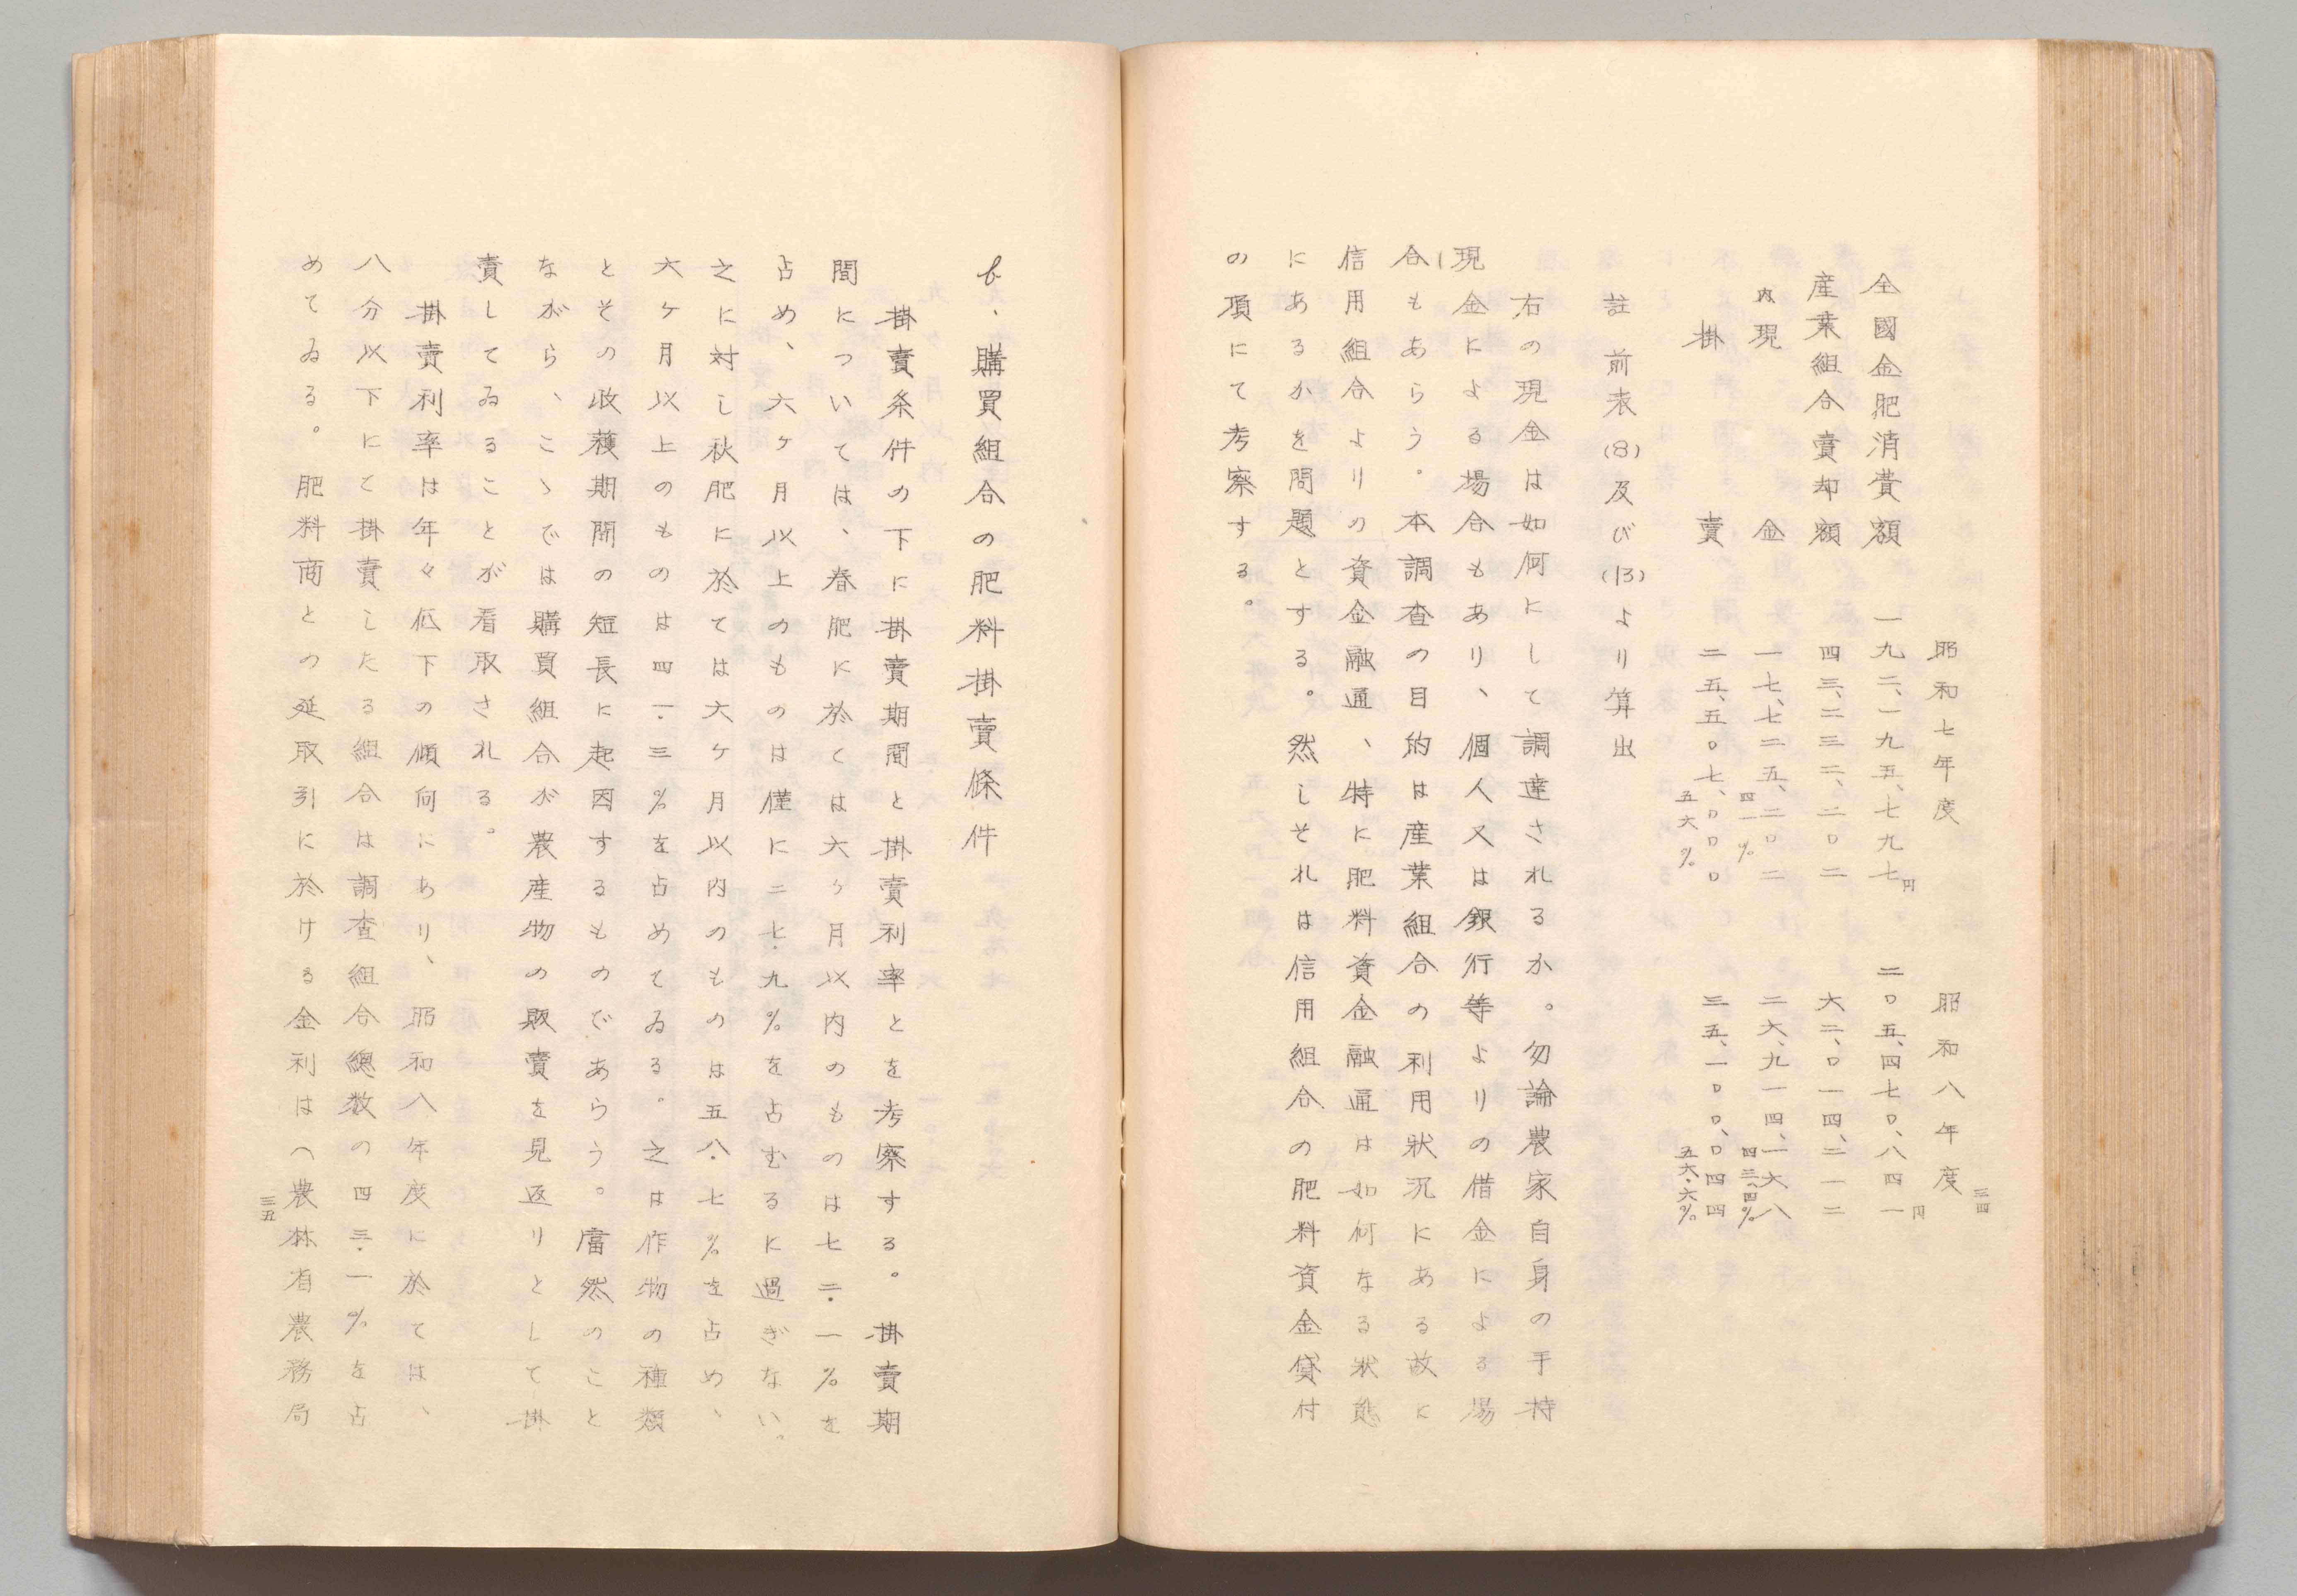 三四
昭和七年度　昭和八年度
全國金肥消費額　一九二、一九五、七九七円　二〇五、四七〇、八四一円
産業組合賣却額　四三、二三二、二〇二　六二、〇一四、二一二
内現金　一七、七二五、二〇二　二六、九一四、一六八
四一%　四三、四%
掛賣　二五、五〇七、〇〇〇　三五、一〇〇、〇四四
五六%　五六・六%
註　前表(8)及び(13)より算出
右の現金は如何にして調達されるか。勿論農家自身の手持
現金による場合もあり、個人又は銀行等よりの借金による場
合もあらう。本調査の目的は産業組合の利用狀況にある故に
信用組合よりの資金融通、特に肥料資金融通は如何なる狀態
にあるかを問題とする。然しそれは信用組合の肥料資金貸付
の項にて考察する。
b、購買組合の肥料掛賣條件
掛賣条件の下に掛賣期間と掛賣利率とを考察する。掛賣期
間については、春肥に於ては六ヶ月以内のものは七二・一%を
占め、六ヶ月以上のものは僅に二七・九%を占むるに過ぎない。
之に対し秋肥に於ては六ヶ月以内のものは五八・七%を占め、
六ヶ月以上のものは四一・三%を占めてゐる。之は作物の種類
とその收穫期間の短長に起因するものであらう。當然のこと
ながら、こゝでは購買組合が農産物の販賣を見返りとして掛
賣してゐることが看取される。
掛賣利率は年々低下の傾向にあり、昭和八年度に於ては、
八分以下にて掛賣したる組合は調査組合總数の四三・一%を占
めてゐる。肥料商との延取引に於ける金利は（農林省農務局
三五